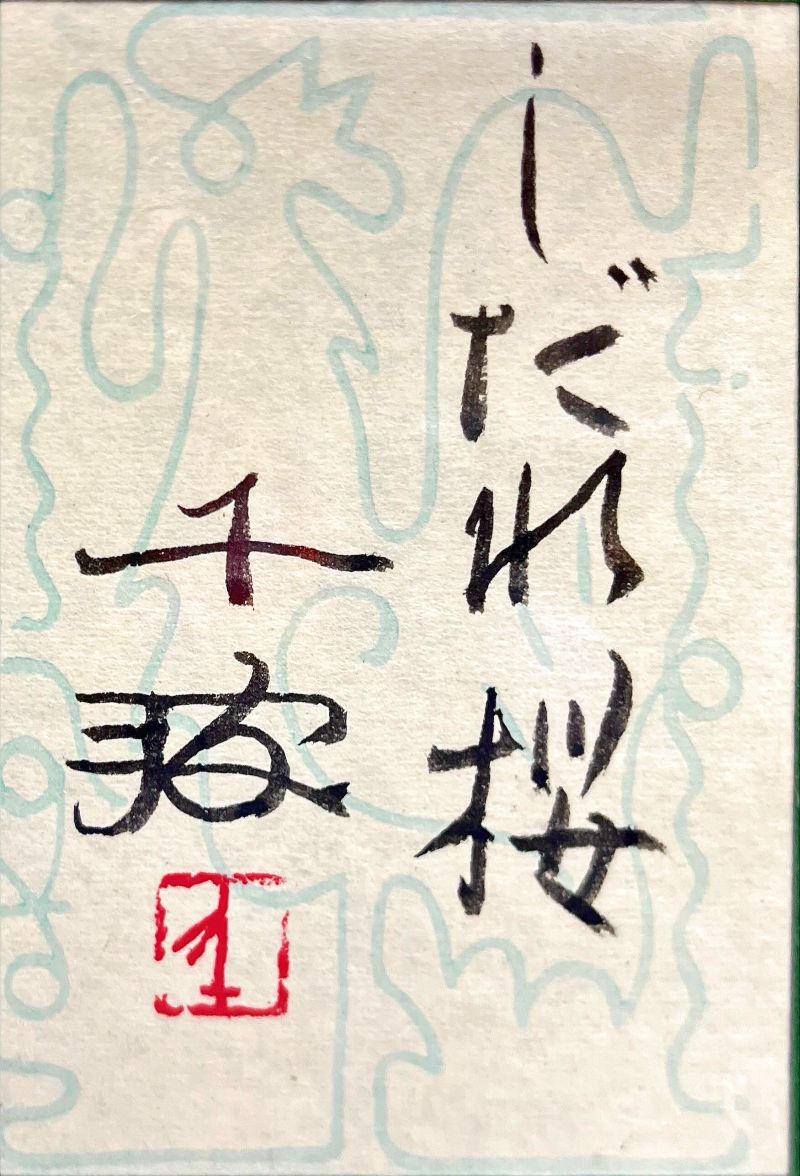 しだれ桜
千